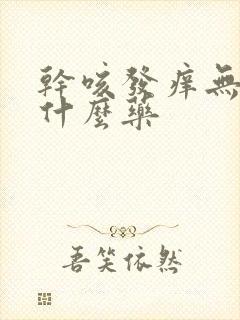 幹咳發癢無
什麼藥
吾笑依然